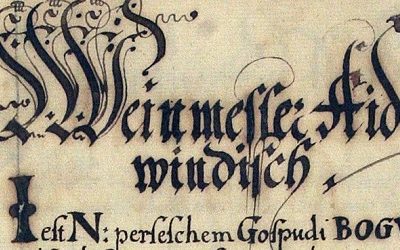 Weinmesser Aid
windisch
Iest N: perseschem Gospudi BOGV